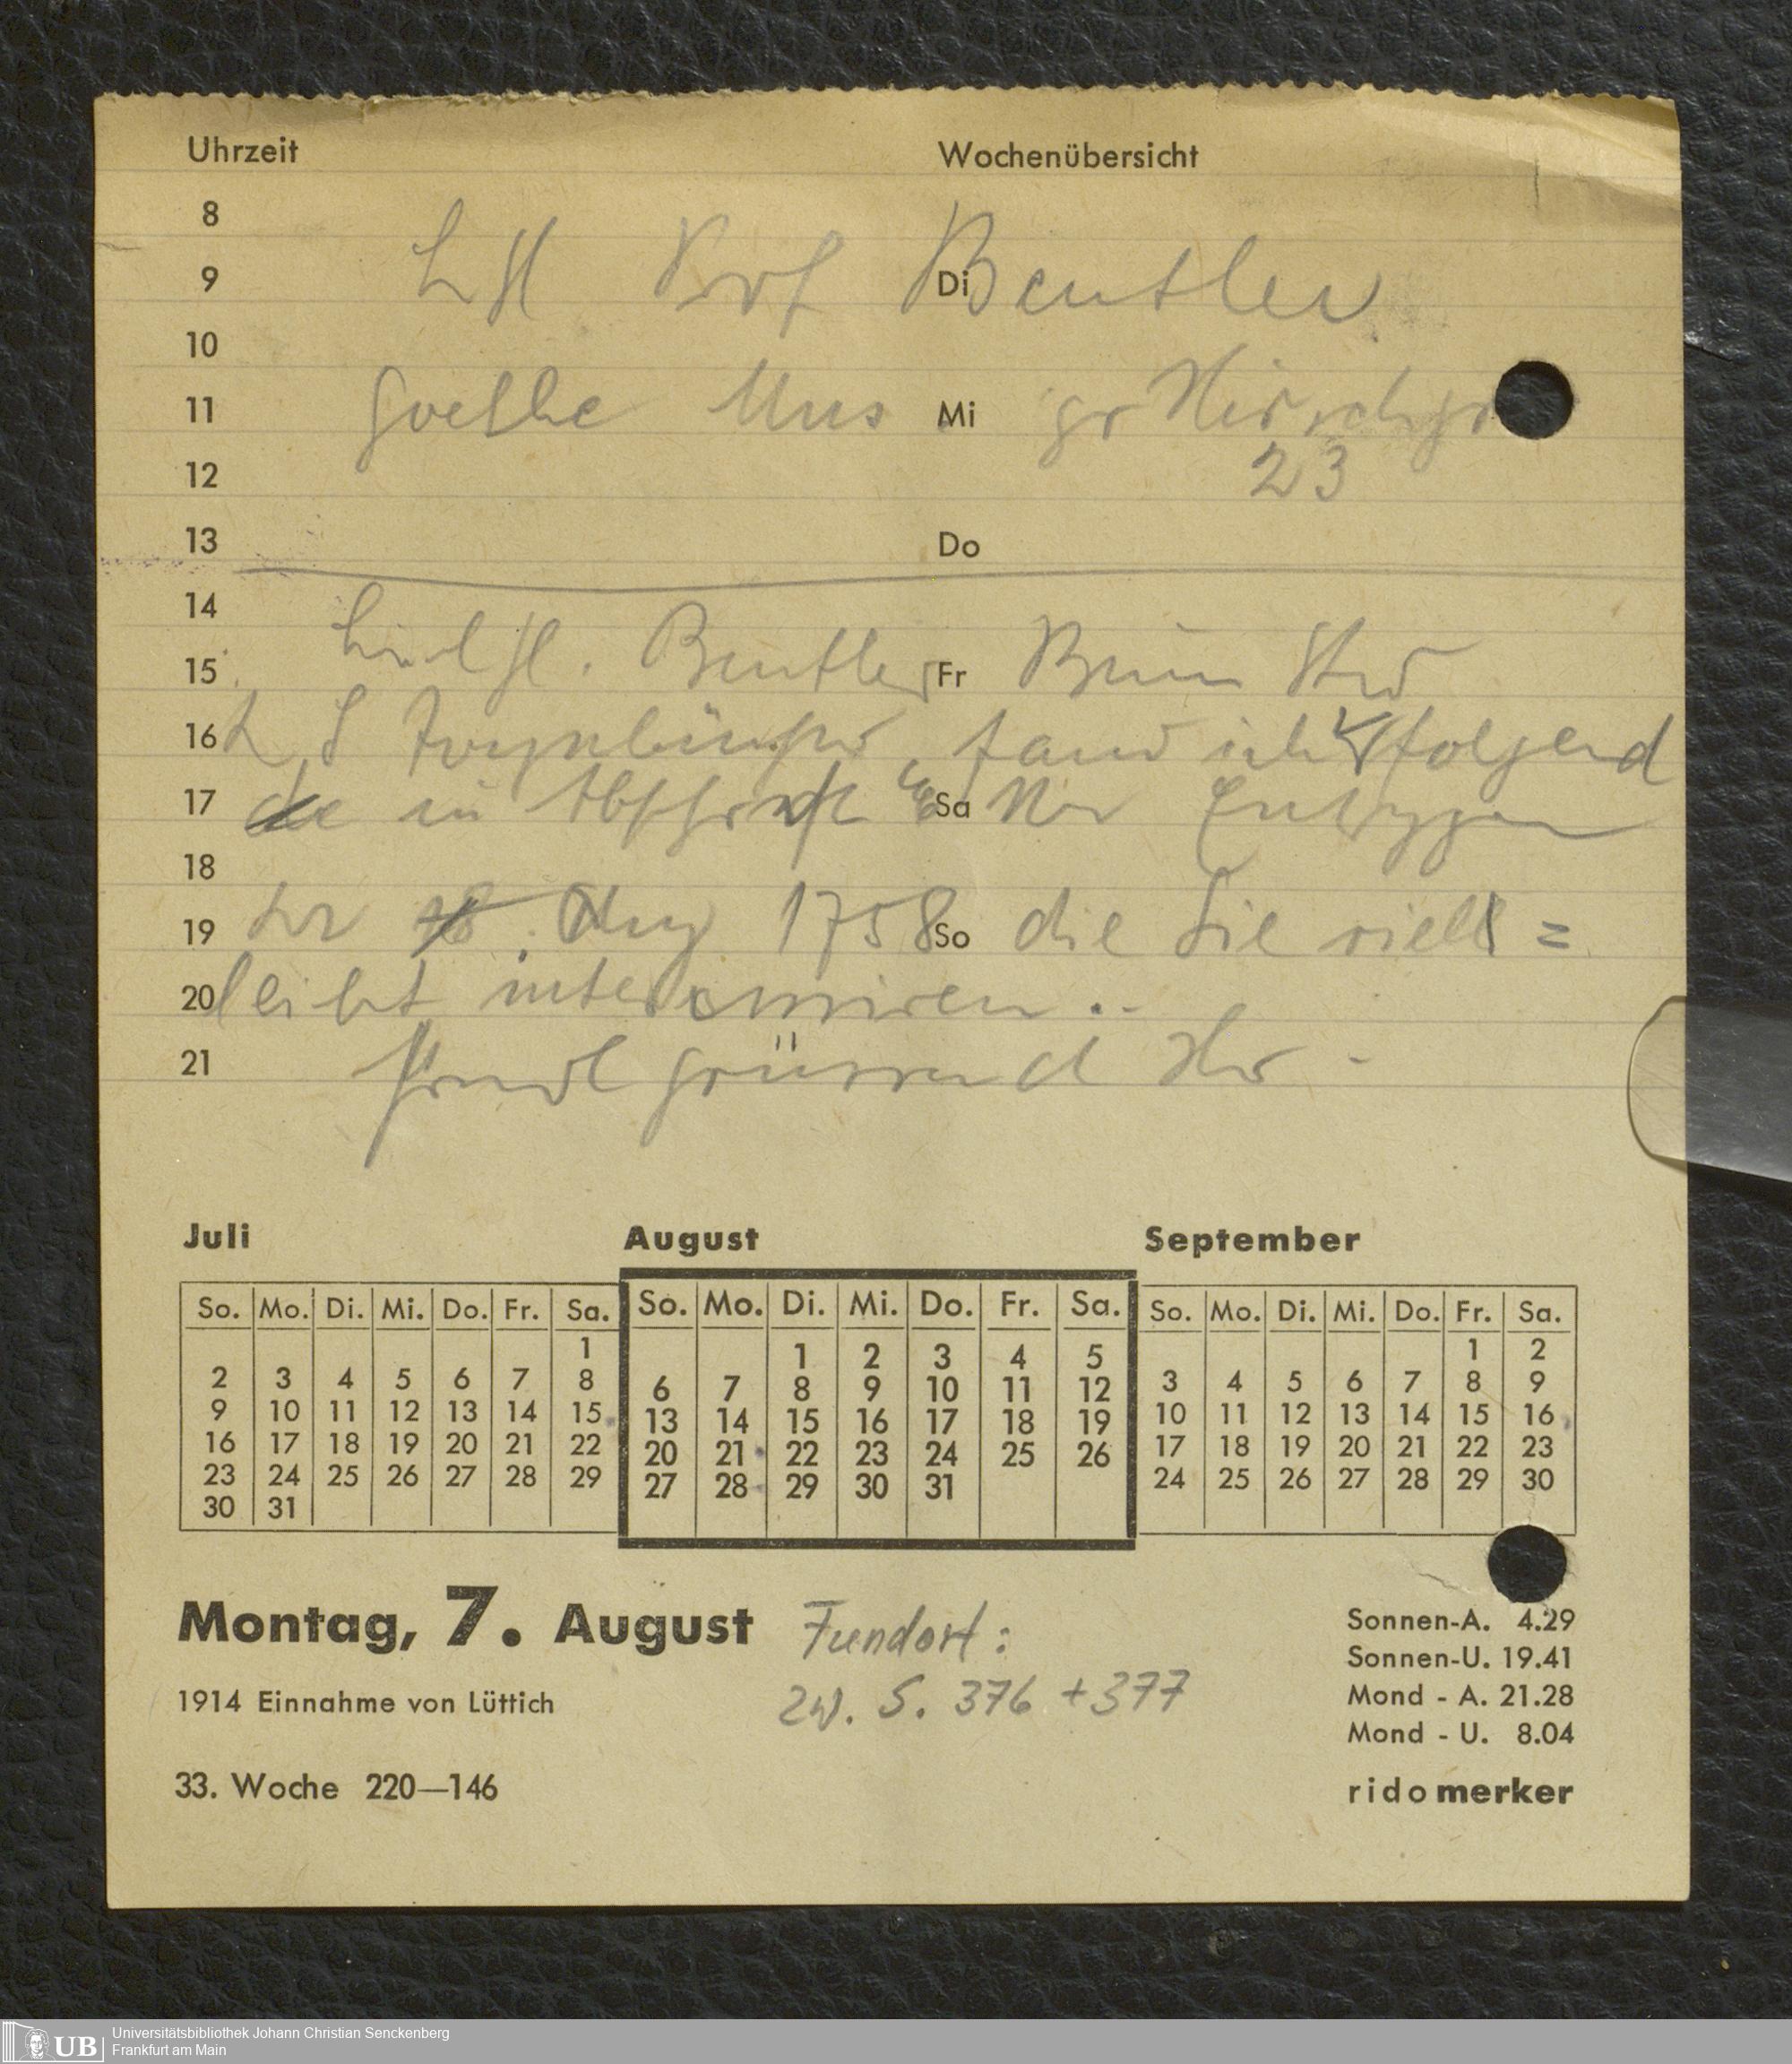 Uhrzeit
Wochenübersicht
8
9 Prof Di Beutler
10
11 Goethe Mus Mi gr Hirschgr
12 23
13 Do
14
15 Beutler Fr Beim
16 fand ich folgend
17 de in Abschrift Sa
18
19 der 18. Aug 1758 So die Sie viell=
20 leicht interessiren..
21 grüssend Ihr -
Juli
So. Mo. Di. Mi. Do. Fr. Sa.
1
2 3 4 5 6 7 8
9 10 11 12 13 14 15
16 17 18 19 20 21 22
23 24 25 26 27 28 29
30 31
August
So. Mo. Di. Mi. Do. Fr. Sa.
1 2 3 4 5
6 7 8 9 10 11 12
13 14 15 16 17 18 19
20 21 22 23 24 25 26
27 28 29 30 31
September
So. Mo. Di. Mi. Do. Fr. Sa.
1 2
3 4 5 6 7 8 9
10 11 12 13 14 15 16
17 18 19 20 21 22 23
24 25 26 27 28 29 30
Montag, 7. August
Fundort:
zw. S. 376 + 377
1914 Einnahme von Lüttich
33. Woche 220—146
Sonnen-A. 4.29
Sonnen-U. 19.41
Mond - A. 21.28
Mond - U. 8.04
ridomerker
UB
Universitätsbibliothek Johann Christian Senckenberg
Frankfurt am Main